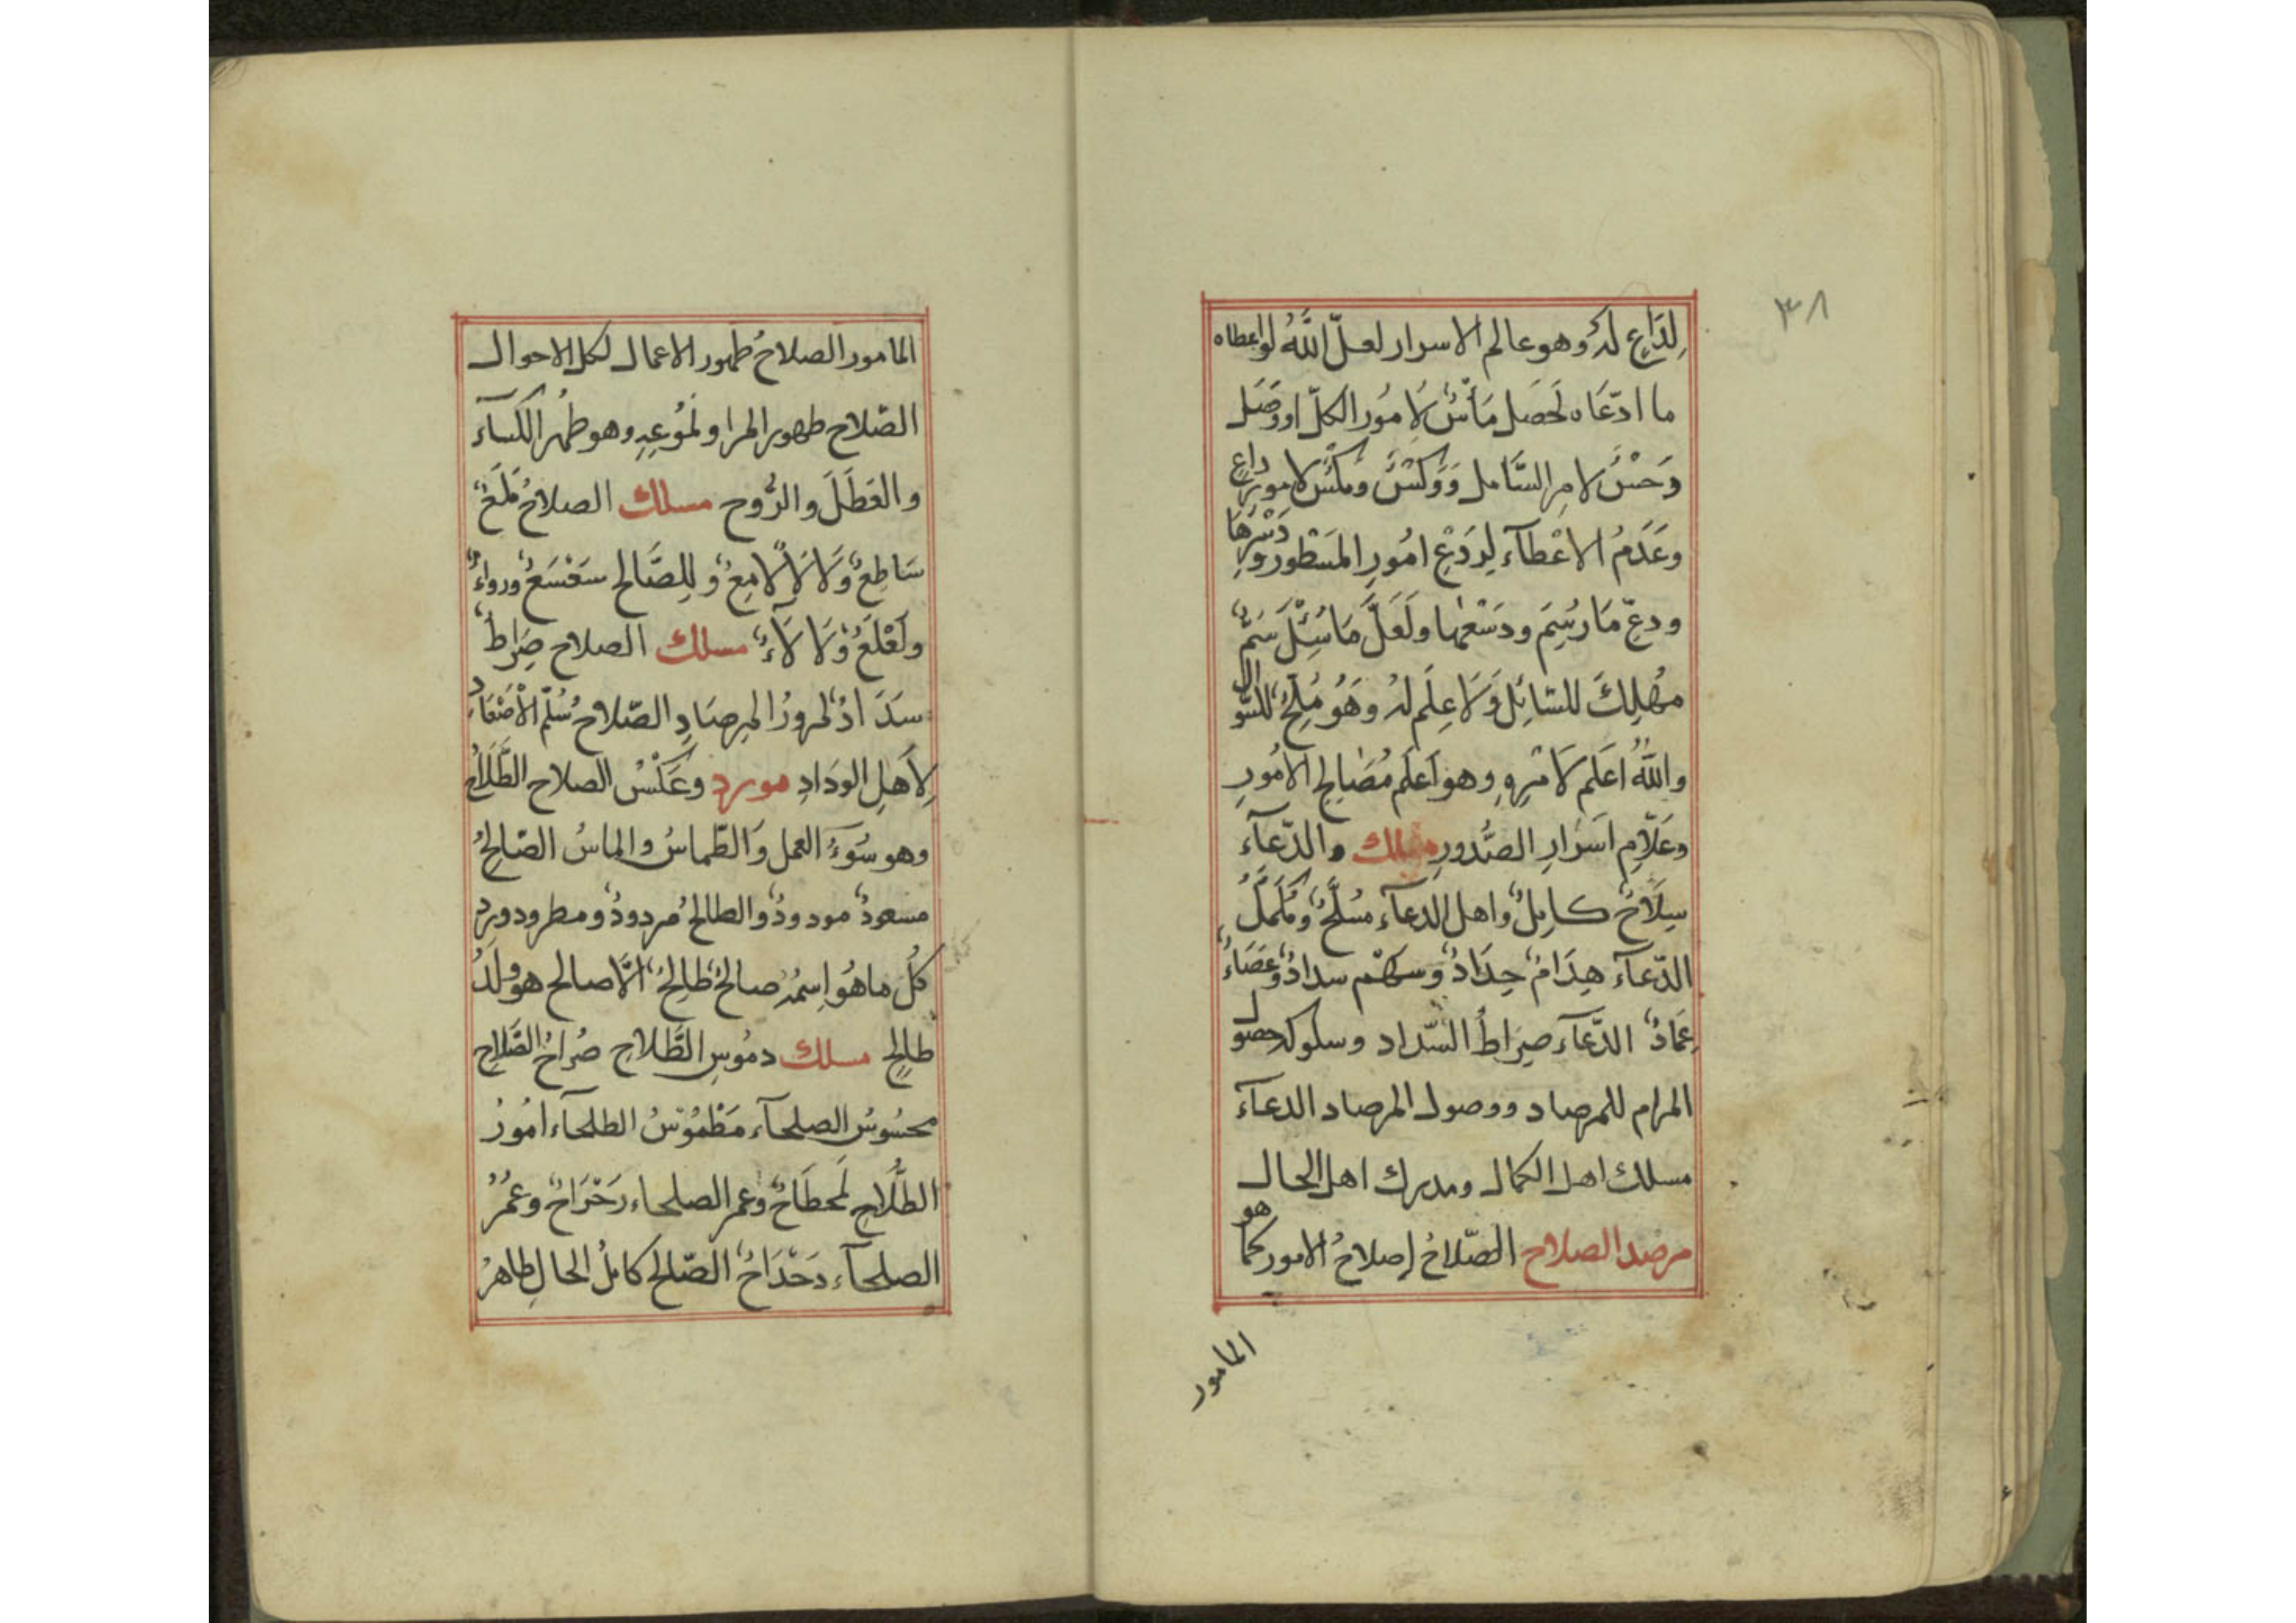 ٣٨
لِدَاعٍ لَهُ وهو عالم الاسرار لعلّ اللّٰهُ لو اعطاه
ما ادّعَاه لَحَصَل مَأْسٌ لِامُور الكلّ او وَصَل
وَعَدَمُ الاعْطآء لِرَدْعِ امُورِ المَسْطور
ودعّ مَا رُسِمَ ودَسْعِها ولَعَلَّ مَا سُئِلَ سَمٌّ
مُهْلِكٌ للسّائِل وَلَا عِلْم لهُ وَهُو مُلِحٌّ للسّؤال
واللّٰهُ اعلَم لامْرِهِ وهو اَعلَم مُصَالِح الامُورِ
وعَلّامِ اَسْرَارِ الصُّدورِ مسلك والدّعآء
سِلَاحٌ كامِلٌ واهل الدعآء مُسَلَّحٌ ومُكَمَّلٌ
الدّعآء هِدَامٌ حِدَادٌ وسَهْم سدادٌ وعَصَاءٌ
عِمَادٌ الدّعآء صِرَاطُ السّداد وسلوكه حصول
المرام للمرصاد ووصول المرصاد الدعآء
مسلك اهل الكمال ومدرك اهل الحال
مرصد الصلاح الصّلاحُ إصلاحُ الامور كما هو
المامور
المامور الصلاحُ طهور الاعمال لكل الاحوال
الصّلاح طهور المرا وهو طُهر الكسآء
والعَطَل والرُّوح مسلك الصلاحُ
سَاطِعٌ لامِعٌ وللِصَّالح ورواءٌ
ولَعْلَعٌ مسلك الصلاح صِرَاطُ
سدَادٌ لمرورُ المِرصَادِ الصّلاح سُلّم الاصْعَادِ
لِاَهلِ الوِدَادِ مورد وعَكْسُ الصلاح الطَّلَاحُ
وهو سُوءُ العمل وَالطّماسُ والماسُ الصّالحُ
مسعودٌ مودودٌ والطالحُ مردودٌ ومطرود ورد
كلّ ما هُو اِسمُهُ صالحٌ طالحٌ الّا صالح هو ولَدُ
طالحٍ مسلك دمُوسِ الطَّلاحِ صُراحُ الصَّلاحِ
محسُوسُ الصلحآء مَطْمُوسُ الطلحآء امُورُ
الطَّلَاحِ وعمر الصلحاء رَحْرَاحٌ وعمُرُ
الصلحآء دَحْدَاحٌ الصّالح كامِلُ الحالِ طاهرُ